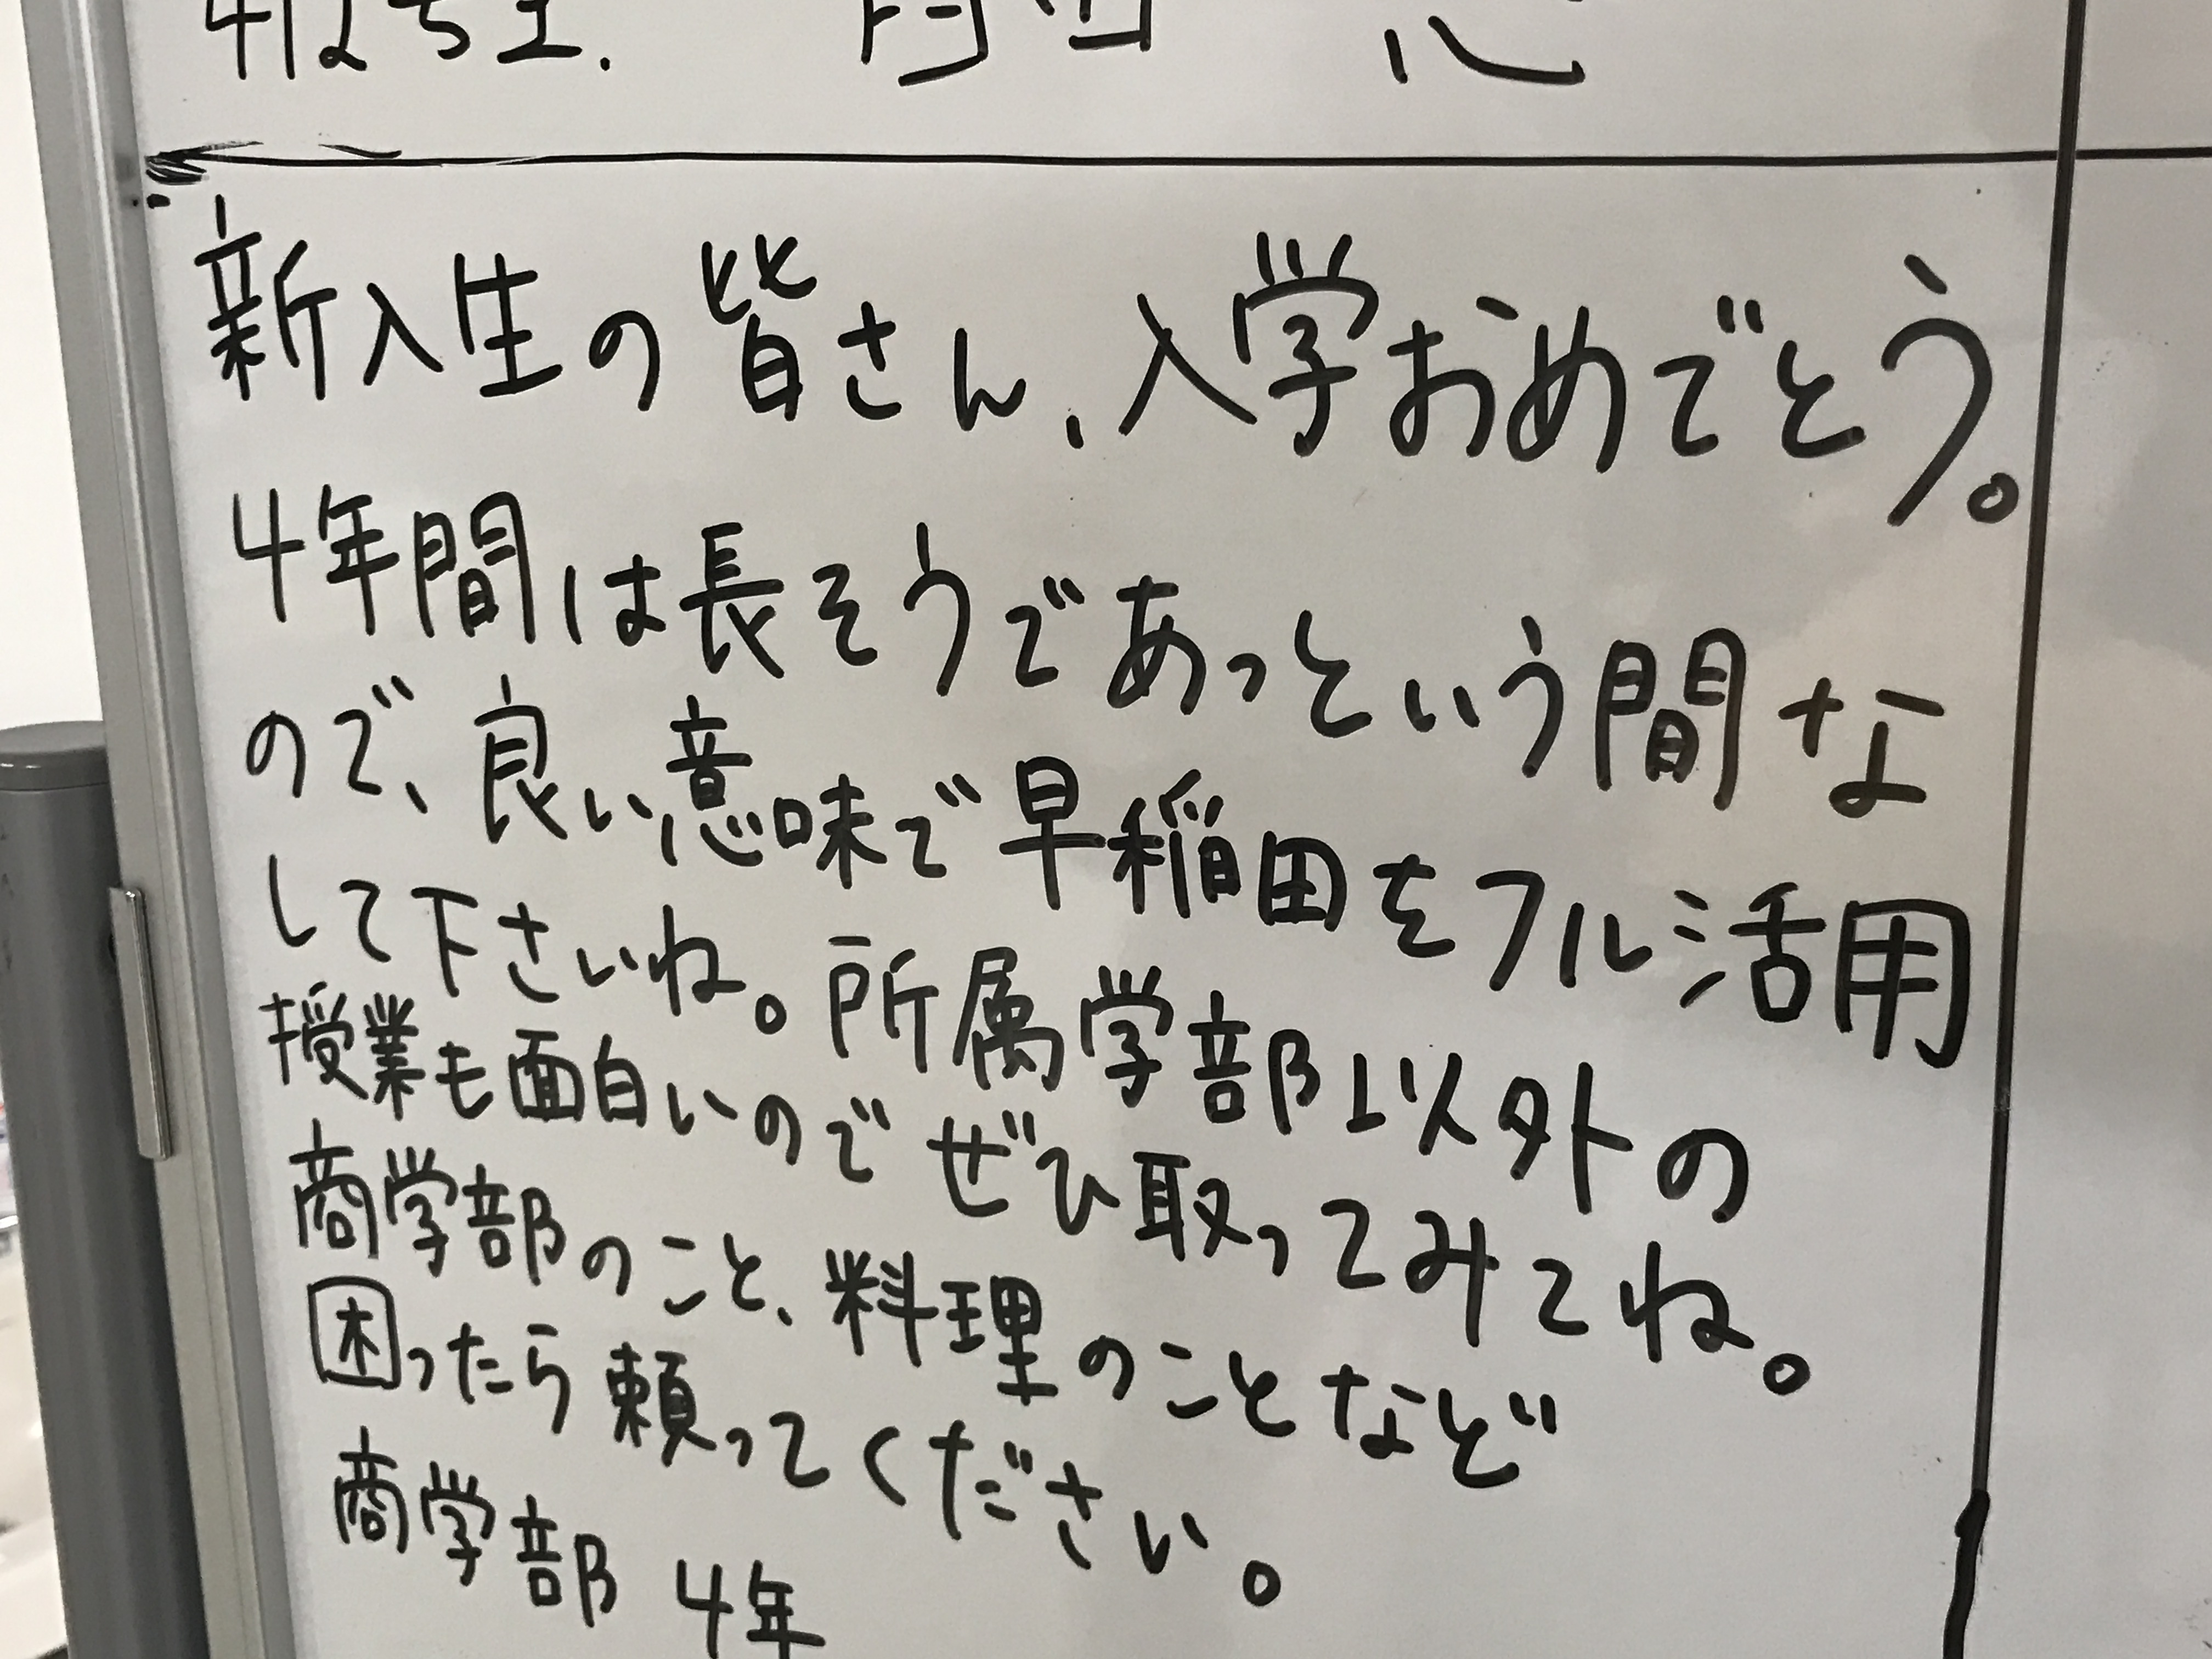 新入生の皆さん、入学おめでとう。
4年間は長そうであっという間な
ので、良い意味で早稲田をフル活用
して下さいね。所属学部以外の
授業も面白いのでぜひ取ってみてね。
商学部のこと、料理のことなど
困ったら頼ってください。
商学部 4年